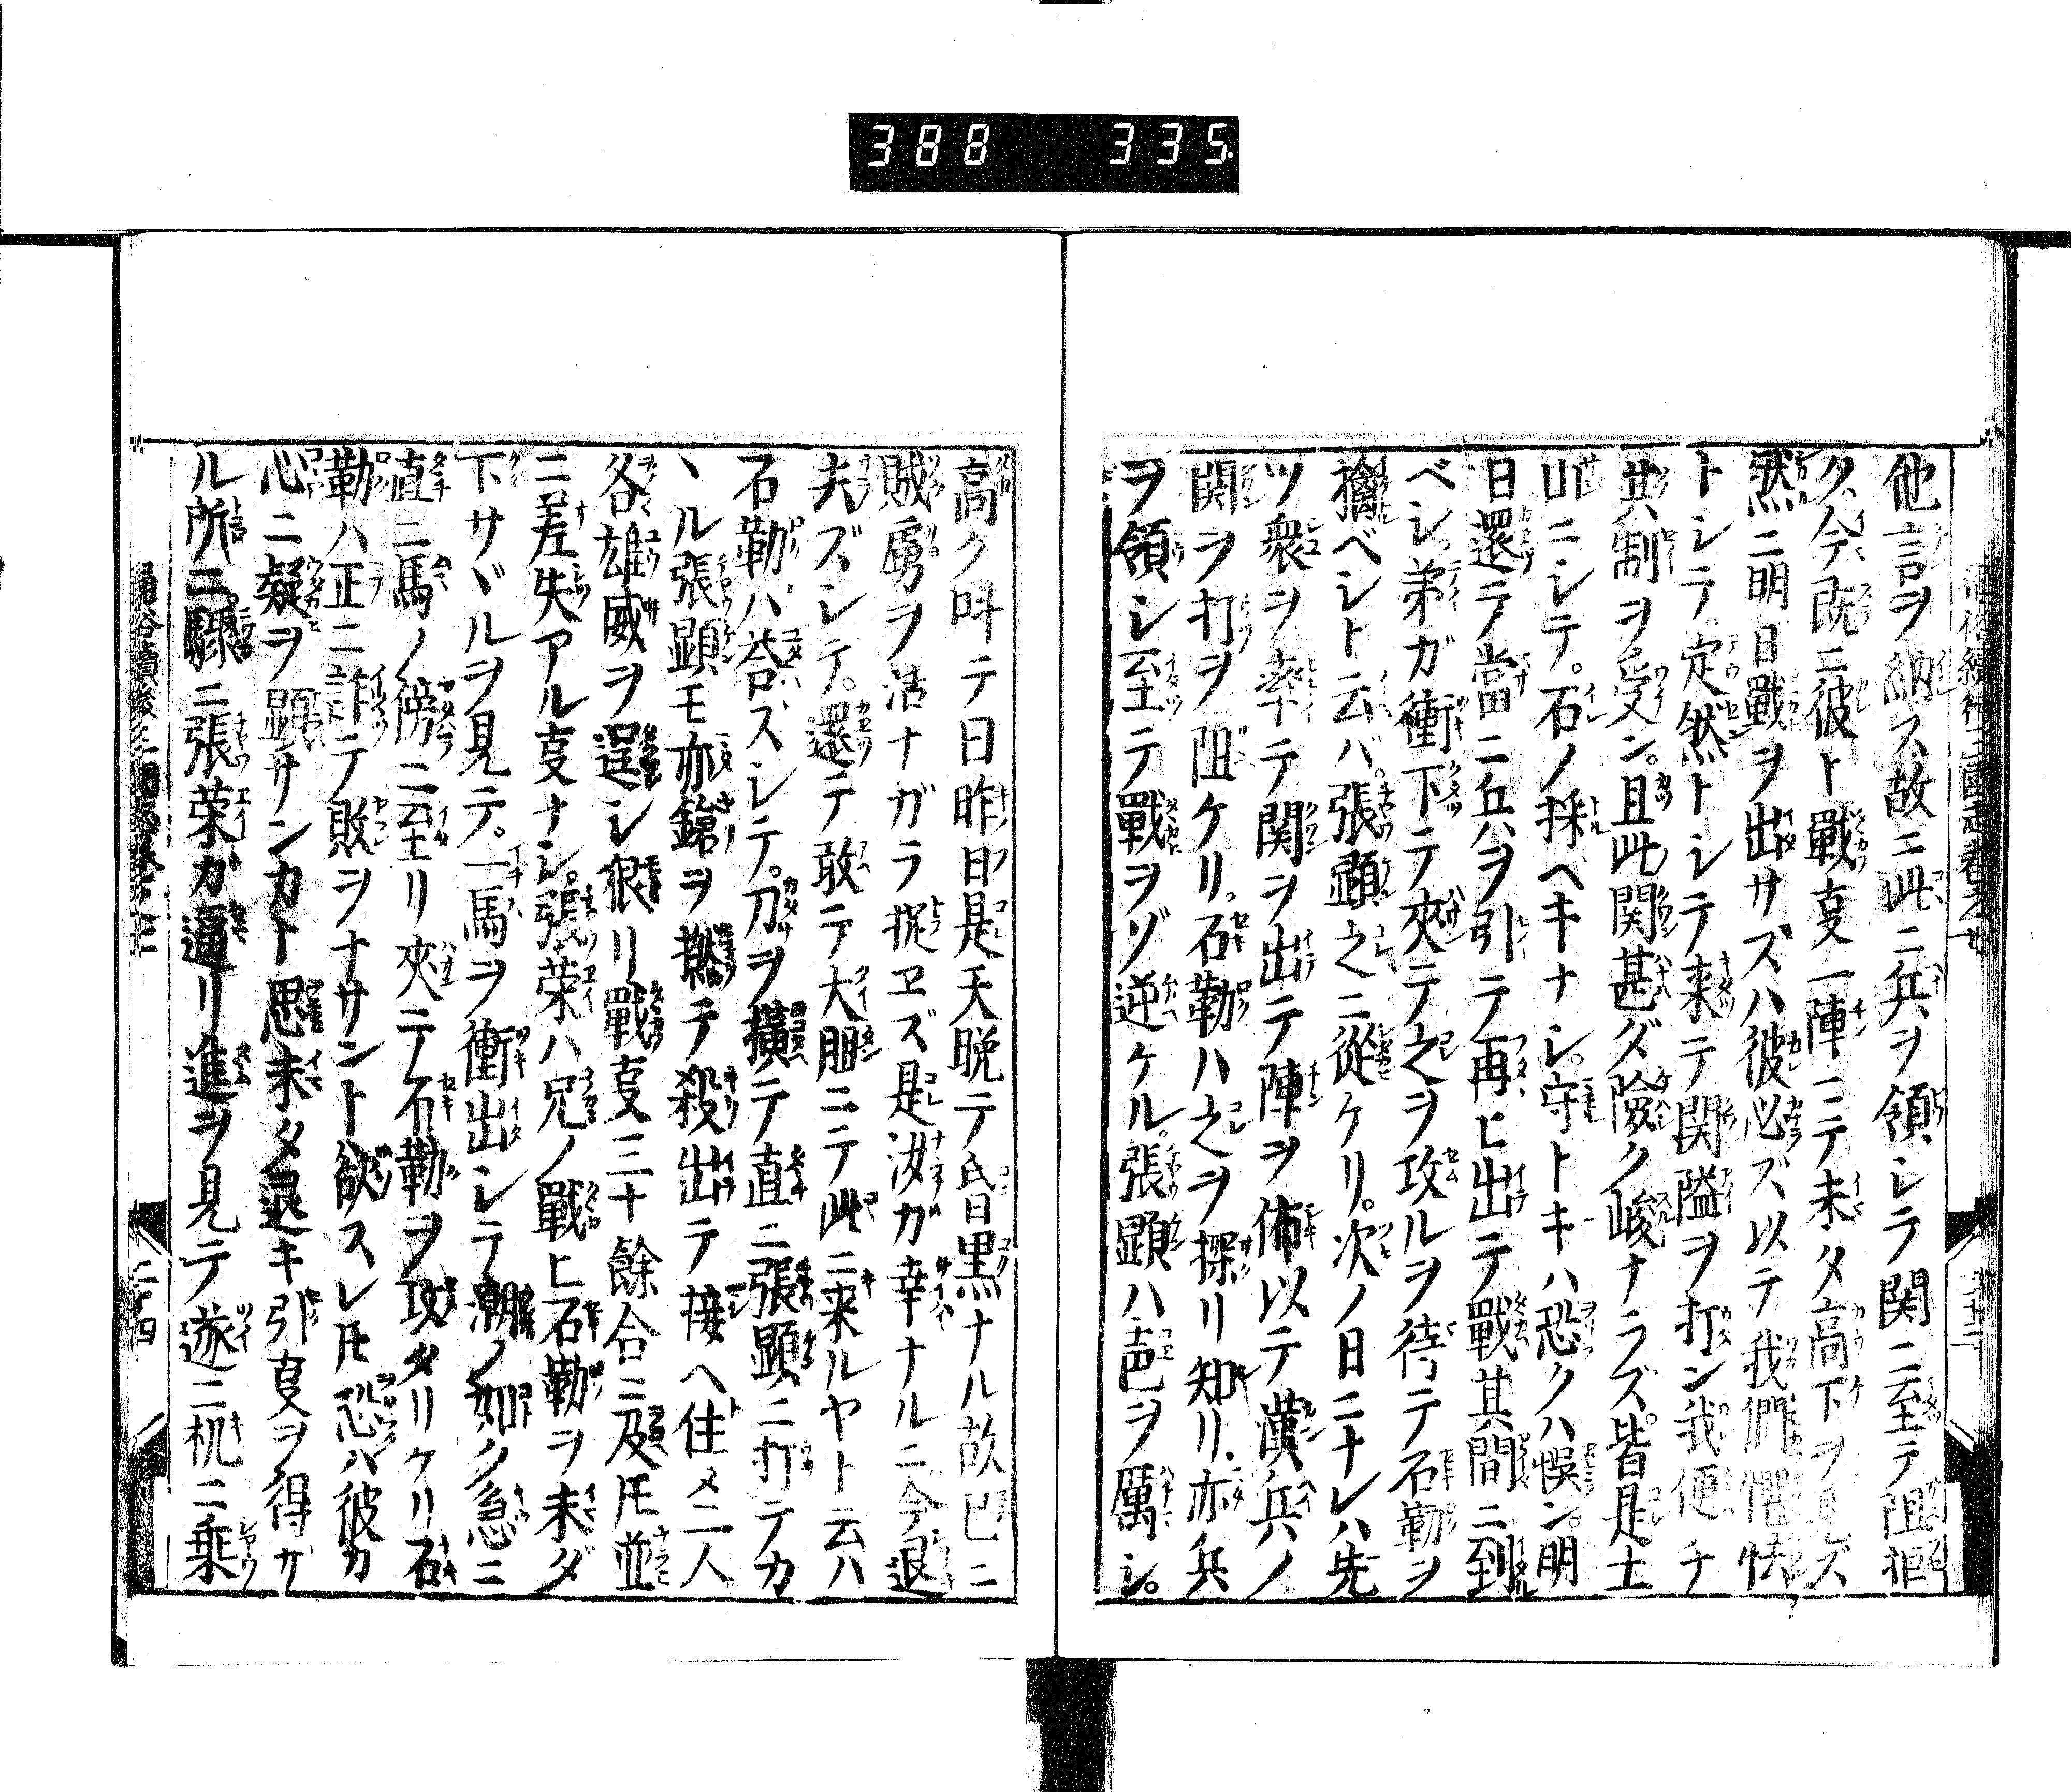 388 335
他言ヲ納ス故ニ此ニ兵ヲ領シテ関ニ至テ阻拒
ク今既ニ彼ト戰𫝆一陣ニテ未タ高下ヲ見ズ
然ニ明日戰ヲ出サズハ彼必ズ以テ我們懼怯
トシテ定然トシテ来テ関隘ヲ打ン我便チ
其制ヲ受ン且此関甚ダ險ク峻ナラズ皆是土
山ニシテ石ノ採ベキナシ守トキハ恐クハ悞ン明
日還テ當ニ兵ヲ引テ再ヒ出テ戰其間ニ到
ベシ弟ガ衝下テ夾テ之ヲ攻ルヲ待テ石勒ヲ
擒ベシト云バ張顕之ニ從ケリ次ノ日ニナレハ先
ツ衆ヲ率テ関ヲ出テ陣ヲ佈以テ漢兵ノ
関ヲ打ヲ阻ケリ石勒ハ之ヲ探リ知リ亦兵
ヲ領シ至テ戰ヲゾ逆ケル張顕ハ声ヲ厲シ
高ク呌テ曰昨日是天晩テ昏黒ナル故已ニ
賊虜ヲ活ナガラ捉ヱズ是汝ガ幸ナルニ今退
夫ズシテ還テ敢テ大胆ニテ此ニ来ルヤト云ハ
石勒ハ荅ズシテ刀ヲ擴テ直ニ張顕ニ打テカ
ヽル張顕モ亦鎗ヲ撚テ殺出テ接ヘ住メ二人
各雄威ヲ逞シ狠リ戰𫝆三十餘合ニ及𪜈並
ニ差失アル𫝆ナシ張荣ハ兄ノ戰ヒ石勒ヲ未ダ
下サヾルヲ見テ一馬ヲ衝出シテ潮ノ如ク急ニ
直ニ馬ノ傍ニ至リ夾テ石勒ヲ攻タリケリ石
勒ハ正ニ詐テ敗ヲナサント欲スレ𪜈恐ハ彼カ
心ニ疑ヲ顕サンカト思未タ退キ引𫝆ヲ得ザ
ル所ニ驟ニ張荣ガ逼リ進ヲ見テ遂ニ机ニ乗
二十四